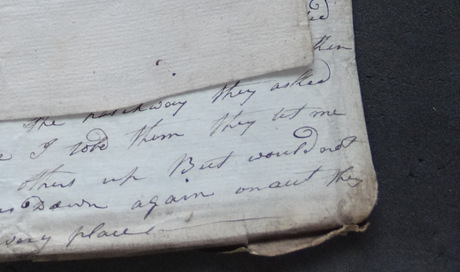 the hatchway they asked
I told them they let me
others up But would not
Down again onaut they
very place